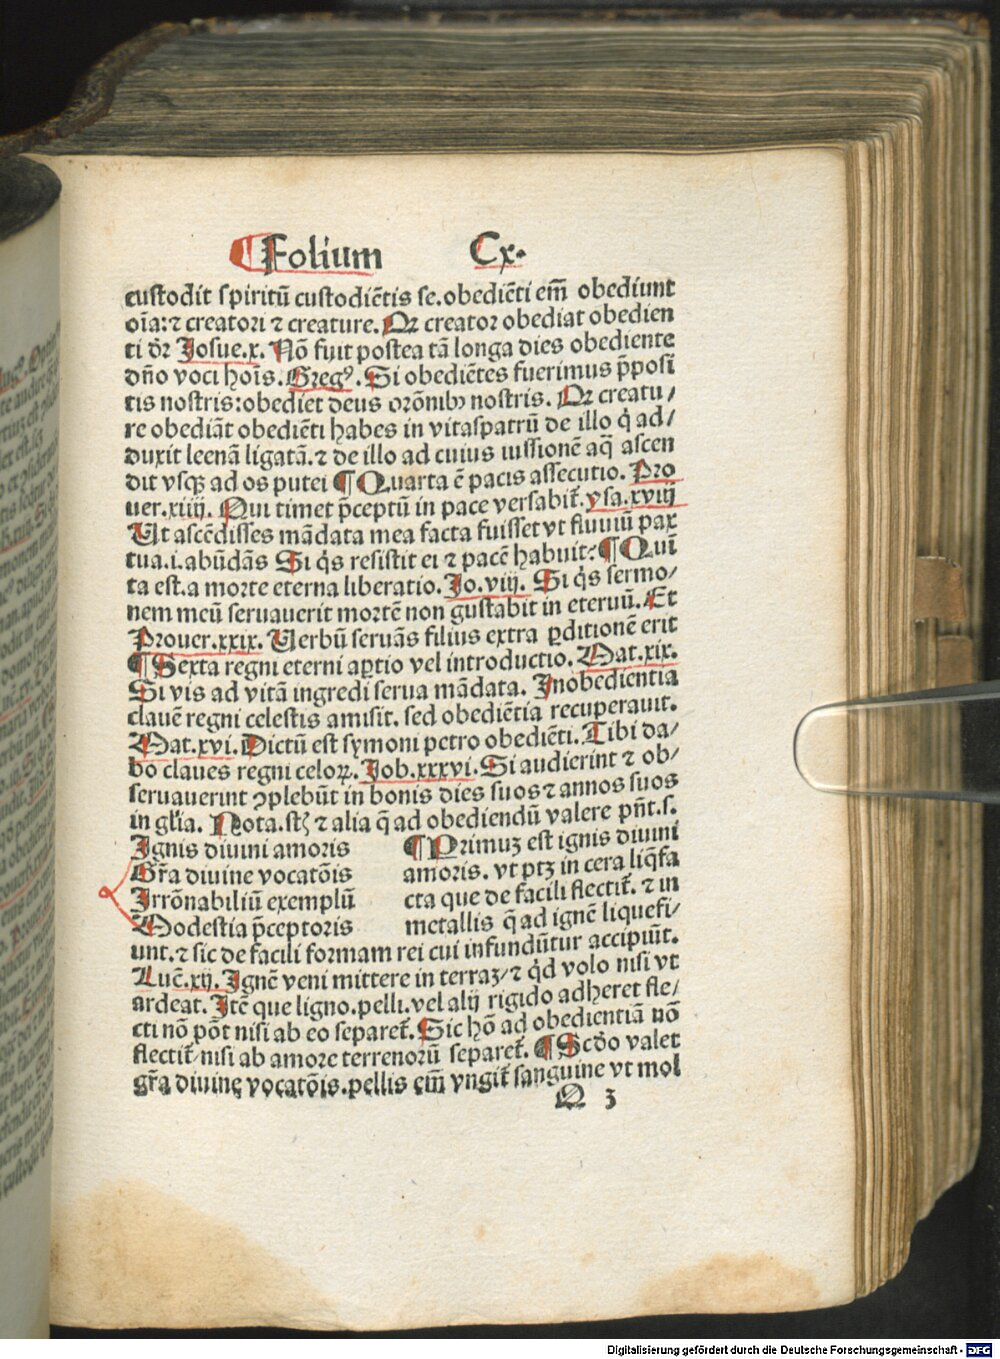 ¶Folium Cx.
custodit spiritū custodiētis se. obediēti em̄ obediunt
oīa: ⁊ creatori ⁊ creature. Qꝛ creator obediat obedien
ti dr̄ Josue.x. Nō fuit postea tā longa dies obediente
dn̄o voci hoīs. Gregꝰ. Si obediētes fuerimus p̄posi
tis nostris: obediet deus orōnibꝫ nostris. Qꝛ creatu/
re obediāt obediēti habes in vitaspatrū de illo q̇ ad/
duxit leenā ligatā. ⁊ de illo ad cuius iussionē aq̄ ascen
dit vsqꝫ ad os putei ¶ Quarta ē pacis assecutio. Pro
uer.xiiij. Qui timet p̄ceptū in pace versabit᷑. ysa.xviij
Ut ascēdisses mādata mea facta fuisset vt fluuiū pax
tua.i.abūdās Si q̇s resistit ei ⁊ pacē habuit: ¶ Qui
ta est. a morte eterna liberatio. Jo.viij. Si q̇s sermo/
nem meū seruauerit mortē non gustabit in eternū. Et
Prouer.xxix. Uerbū seruās filius extra ꝑditionē erit
¶ Sexta regni eterni aꝑtio vel introductio. Mat.xix.
Si vis ad vitā ingredi serua mādata. Inobedientia
clauē regni celestis amisit. sed obediētia recuperauit.
Mat.xvi. Dictū est symoni petro obediēti. Tibi da/
bo claues regni celoꝝ. Job.xxxvi. Si audierint ⁊ ob/
seruauerint ꝯplebūt in bonis dies suos ⁊ annos suos
in gl'ia. Nota. st̄ꝫ ⁊ alia q̄ ad obediendū valere pn̄t.s.
Ignis diuini amoris
Gr̄a diuine vocatōis
Irrōnabiliū exemplū
Modestia p̄ceptoris
¶ Primuꝫ est ignis diuini
amoris. vt ptꝫ in cera liq̄fa
cta que de facili flectit᷑. ⁊ in
metallis q̄ ad ignē liquefi/
unt. ⁊ sic de facili formam rei cui infundūtur accipiūt.
Luc̄.xij. Ignē veni mittere in terraꝫ/ ⁊ q̇d volo nisi vt
ardeat. Itē que ligno. pelli. vel alij rigido adheret fle/
cti nō pōt nisi ab eo separet᷑. Sic hō ad obedientiā nō
flectit᷑ nisi ab amore terrenorū separet᷑. ¶ Scd̄o valet
gr̄a diuinę vocatōis. pellis em̄ vngit᷑ sanguine vt mol
O 3
Digitalisierung gefördert durch die Deutsche Forschungsgemeinschaft - DFG